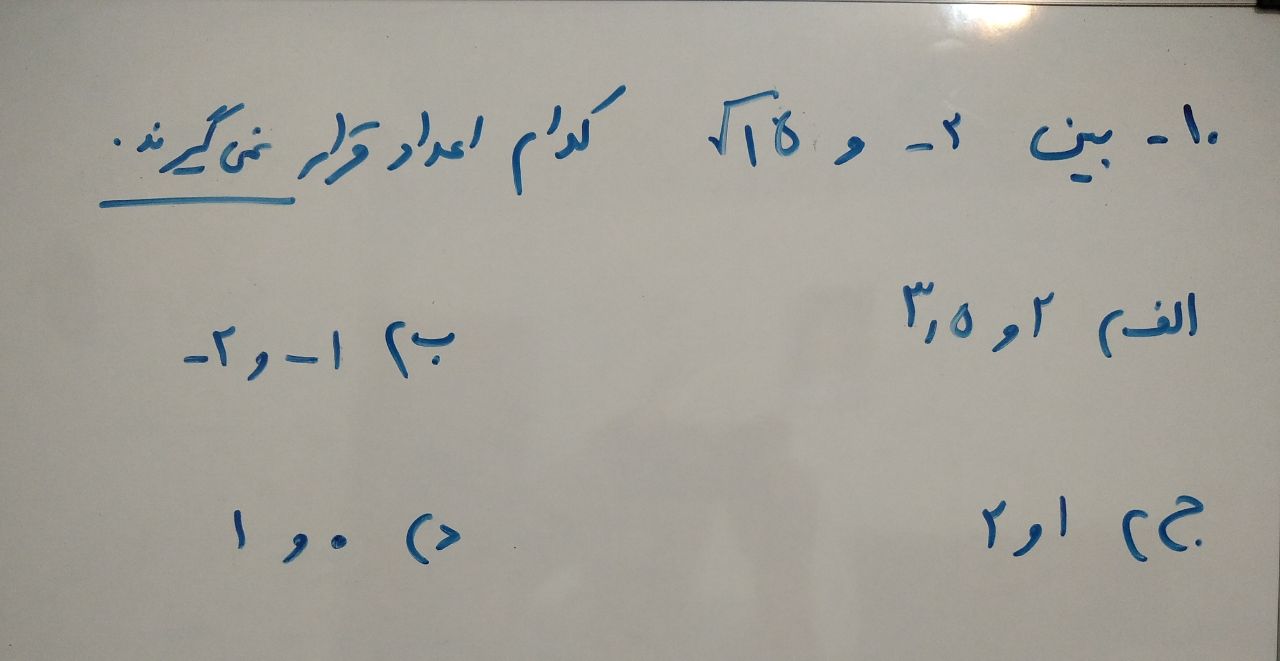 ۱۰- بین -۲ و √۱۵ کدام اعداد قرار نمی‌گیرند.
الف) ۲ و ۳٫۵ ب) -۱ و -۲
ج) ۱ و ۲ د) ۰ و ۱